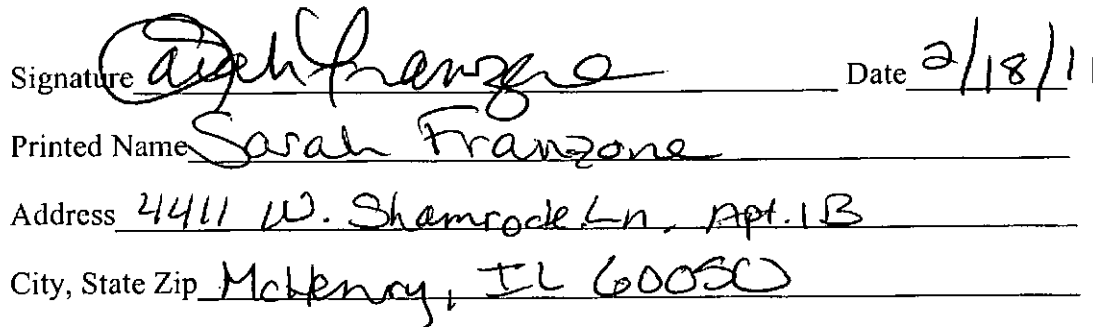 Signature Sarah Franzone Date 2/18/11
Printed Name Sarah Franzone
Address 4411 W. Shamrock Ln, Apt. 1B
City, State Zip McHenry, IL 60050